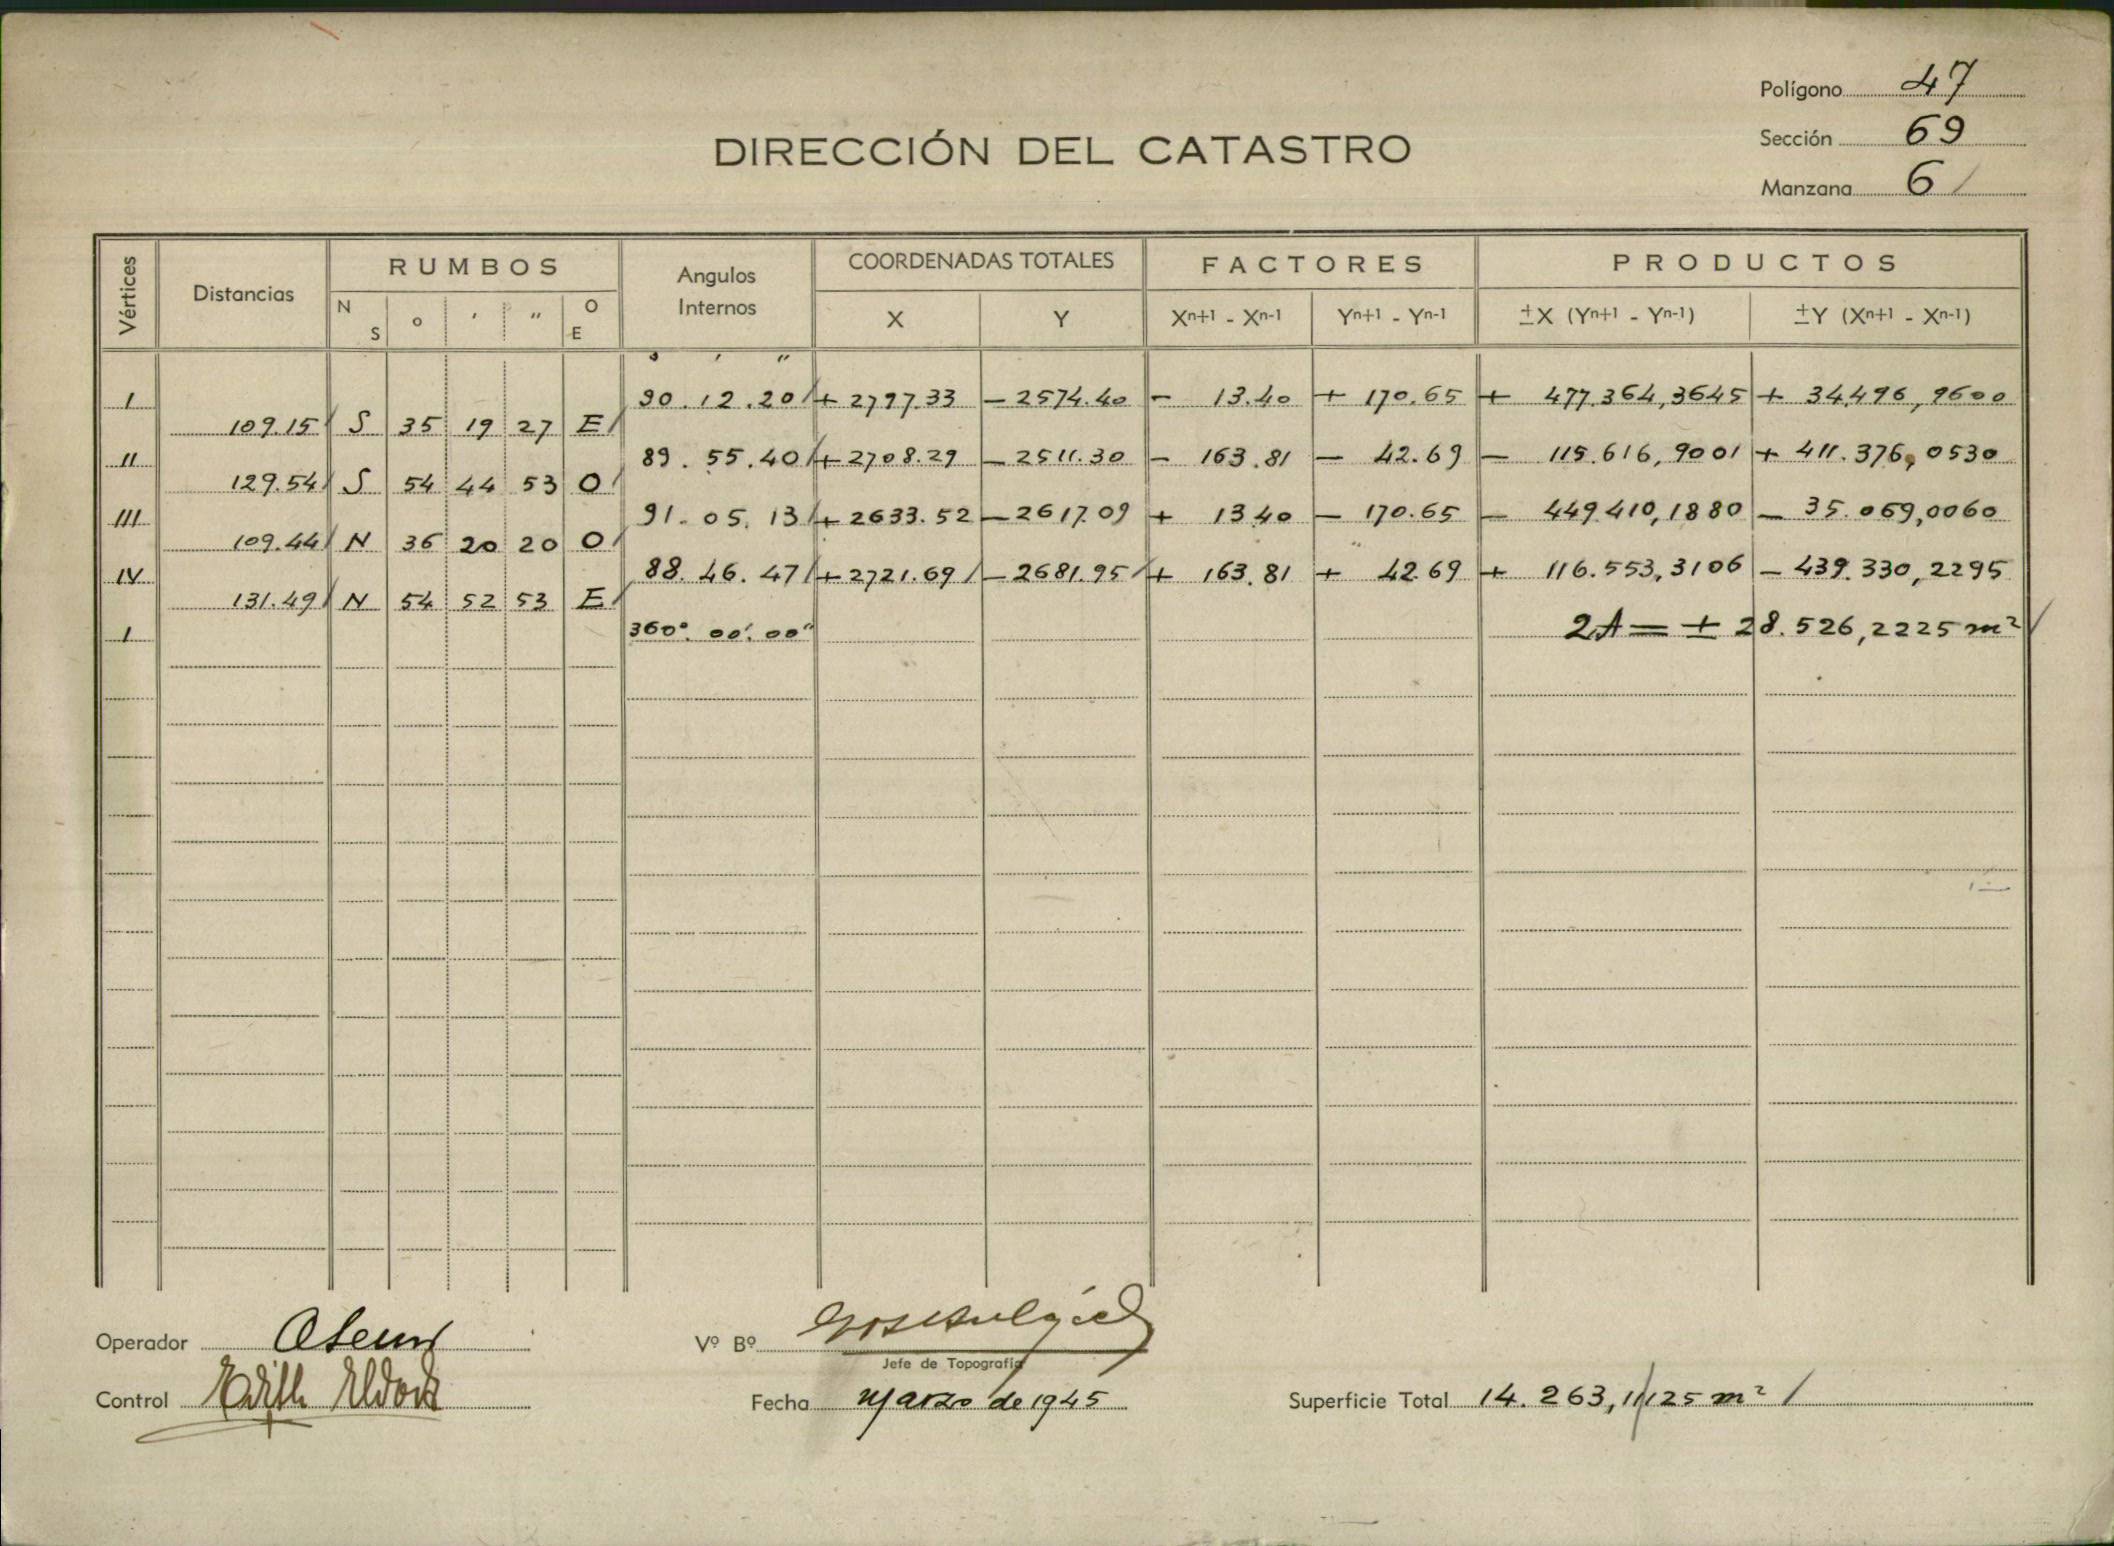 Polígono 47
Sección 69
Manzana 6
DIRECCIÓN DEL CATASTRO
Vértices Distancias RUMBOS Angulos Internos COORDENADAS TOTALES FACTORES PRODUCTOS
N S o ' " O E X Y Xn+1 - Xn-1 Yn+1 - Yn-1 ±X (Yn+1 - Yn-1) ±Y (Xn+1 - Xn-1)
° ' "
I 90.12.20 + 2797.33 - 2574.40 - 13.40 + 170.65 + 477.364,3645 + 34.496,9600
109.15 S 35 19 27 E
II 89.55.40 + 2708.29 - 2511.30 - 163.81 - 42.69 - 115.616,9001 + 411.376,0530
129.54 S 54 44 53 O
III 91.05.13 + 2633.52 - 2617.09 + 13.40 - 170.65 - 449.410,1880 - 35.069,0060
109.44 N 36 20 20 O
IV 88.46.47 + 2721.69 - 2681.95 + 163.81 + 42.69 + 116.553,3106 - 439.330,2295
131.49 N 54 52 53 E
I 360°.00'.00" 2A = ± 28.526,2225 m²
Operador
Vº Bº
Jefe de Topografía
Control Edith
Fecha Marzo de 1945
Superficie Total 14.263,11125 m²